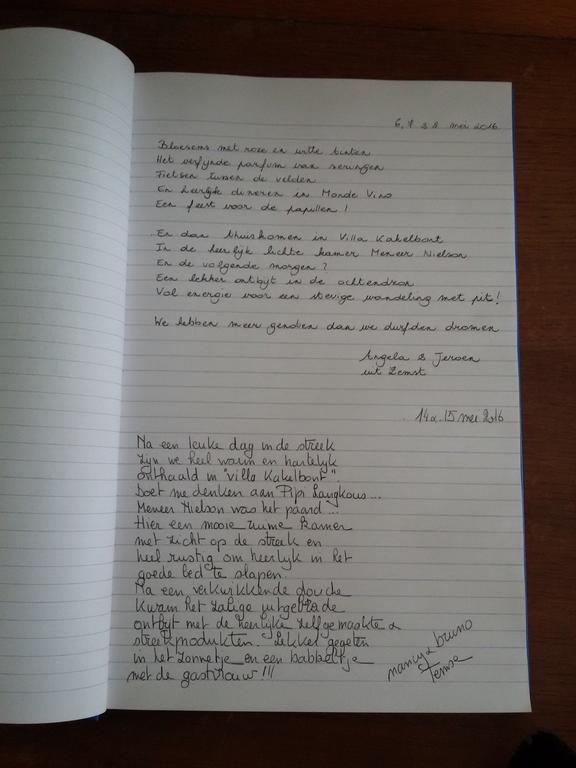 6, 7 & 8 mei 2016
Bloesems met roze en witte tinten
Het verfijnde parfum van seringen
Fietsen tussen de velden
En heerlijk dineren in Monde Vino
Een feest voor de papillen !
En dan thuiskomen in Villa Kakelbont
In de heerlijk lichte kamer Meneer Nielson
En de volgende morgen ?
Een lekker ontbijt in de ochtendzon
Vol energie voor een stevige wandeling met pit !
We hebben meer genoten dan we durfden dromen
Angela & Jeroen
uit Zemst
14 & 15 mei 2016
Na een leuke dag in de streek
zijn we heel warm en hartelijk
onthaald in "Villa Kakelbont".
Doet me denken aan Pipi Langkous ...
Meneer Nielson was het paard ...
Hier een mooie ruime kamer
met zicht op de streek en
heel rustig om heerlijk in het
goede bed te slapen.
Na een verkwikkende douche
kwam het zalige uitgebreide
ontbijt met de heerlijke zelfgemaakte &
streekprodukten. Lekker gegeten
in het zonnetje en een babbeltje
met de gastvrouw !!!
nancy & bruno
Temse